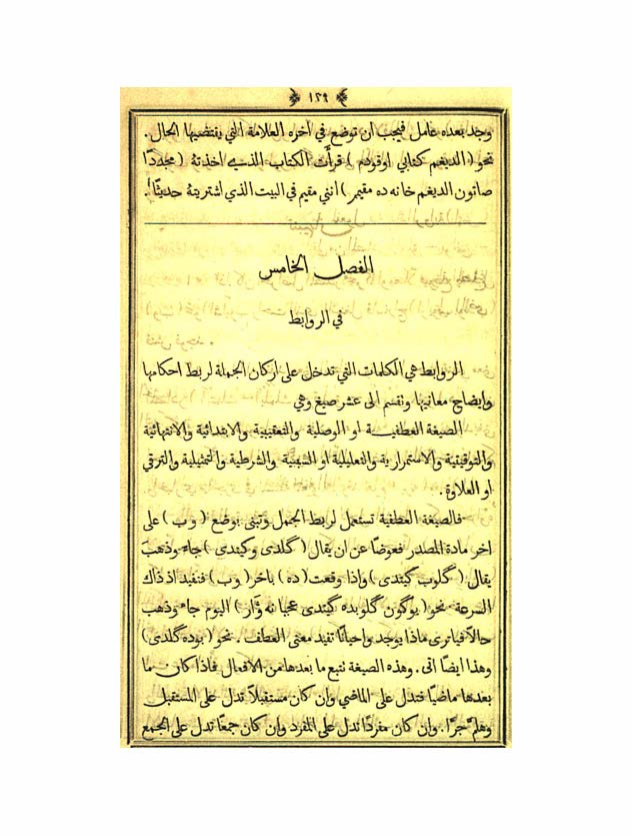 ﴿ ١٢٩ ﴾
وجد بعده عامل فيجب ان توضع في آخره العلامة التي يقتضيها الحال .
نحو ( الديغم كتابي اوقودم ) قرأت الكتاب الذي اخذتهُ ( مجددًا
صاتون الديغم خانه ده مقيمر ) انني مقيم في البيت الذي اشتريتهُ حديثًا .
الفصل الخامس
في الروابط
الروابط هي الكلمات التي تدخل على اركان الجملة لربط احكامها
وايضاح معانيها وتقسم الى عشر صيغ وهي
الصيغة العطفية او الوصلية والتعقيبية والابتدائية والانتهائية
والتوقيتية والاستمرارية والتعليلية او السببية والشرطية والتمثيلية والترقي
او العلاوة .
فالصيغة العطفية تستعمل لربط الجمل وتبنى بوضع ( وب ) على
اخر مادة المصدر فعوضًا عن ان يقال ( گلدى وگيتدى ) جاء وذهب
يقال ( گلوب گيتدى ) واذا وقعت ( ده ) باخر ( وب ) فتفيد اذ ذاك
السرعة نحو ( بوگون گلوبده گيتدى عجبا نه وار ) اليوم جاء وذهب
حالًا فياترى ماذا يوجد واحيانًا تفيد معنى العطف . نحو ( بوده گلدى )
وهذا ايضًا اتى . وهذه الصيغة تتبع ما بعدها من الافعال فاذا كان ما
بعدها ماضيًا فتدل على الماضي وان كان مستقبلًا تدل على المستقبل
وهلم جرًا . وان كان مفردًا تدل على المفرد وان كان جمعًا تدل على الجمع